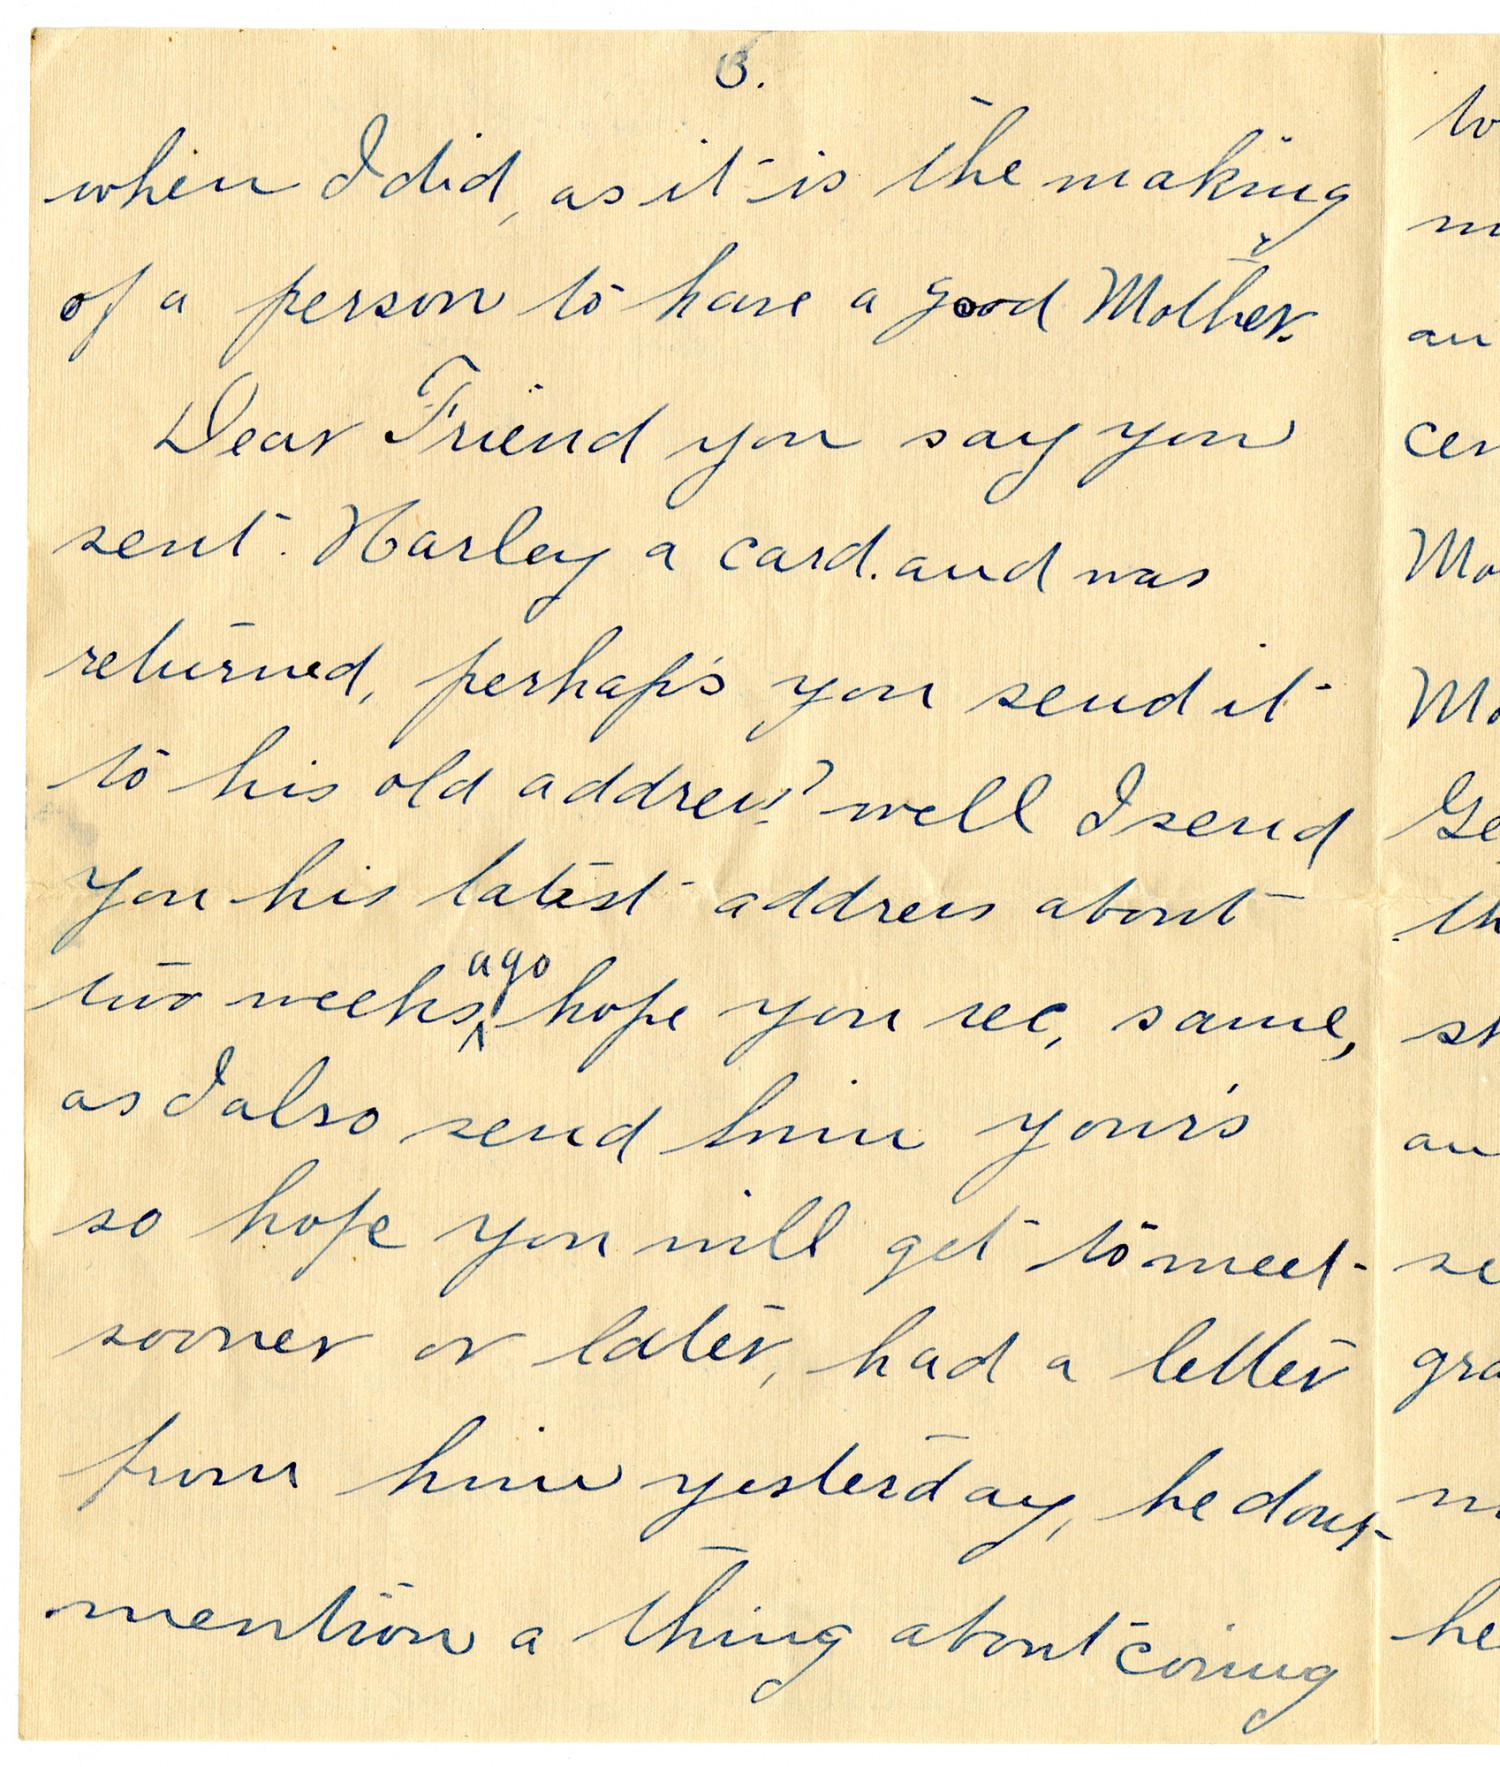 3.
when I did, as it is the making
of a person to have a good Mother.
Dear Friend you say you
sent. Harley a card. and was
returned, perhap's you send it
to his old address? well I send
you his latest address about
two weeks ago hope you rec, same,
as I also send him your's
so hope you will get to meet
sooner or later, had a letter
from him yesterday, he dont
mention a thing about coming
to
an
cen
Mo
Mo
Ge
th
st
an
se
gra
he